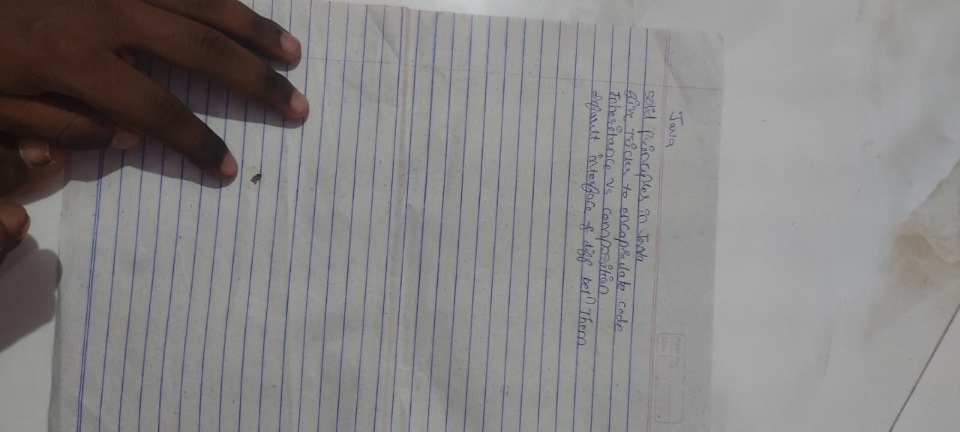 Java
solid principles in Java
Give tricks to encapsulate code
Inheritance vs composition
default interface & diff betn Them